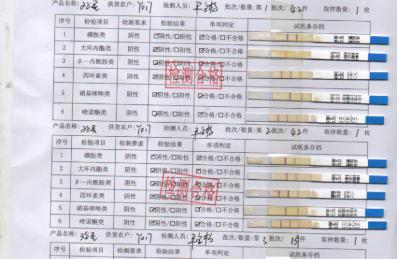 产品名称: 供货农户: 检测人员: 批次/数量:第1 取样数量:1枚
序号 检验项目 检测要求 检验结果 单项判定 试纸条存档
1 磺胺类 阴性 ☑阴性/□阳性 ☑合格/□不合格
2 大环内酯类 阴性 ☑阴性/□阳性 ☑合格/□不合格
3 β-内酰胺类 阴性 ☑阴性/□阳性 ☑合格/□不合格
4 四环素类 阴性 ☑阴性/□阳性 ☑合格/□不合格
5 硝基咪唑类 阴性 ☑阴性/□阳性 ☑合格/□不合格
6 喹诺酮类 阴性 ☑阴性/□阳性 ☑合格/□不合格
检测合格
产品名称: 供货农户: 检测人员: 批次/数量:第2 取样数量:1枚
序号 检验项目 检测要求 检验结果 单项判定 试纸条存档
1 磺胺类 阴性 ☑阴性/□阳性 ☑合格/□不合格
2 大环内酯类 阴性 ☑阴性/□阳性 ☑合格/□不合格
3 β-内酰胺类 阴性 ☑阴性/□阳性 ☑合格/□不合格
4 四环素类 阴性 ☑阴性/□阳性 ☑合格/□不合格
5 硝基咪唑类 阴性 ☑阴性/□阳性 ☑合格/□不合格
6 喹诺酮类 阴性 ☑阴性/□阳性 ☑合格/□不合格
检测合格
产品名称: 供货农户: 检测人员: 批次/数量:第3 取样数量:1枚
序号 检验项目 检测要求 检验结果 单项判定 试纸条存档